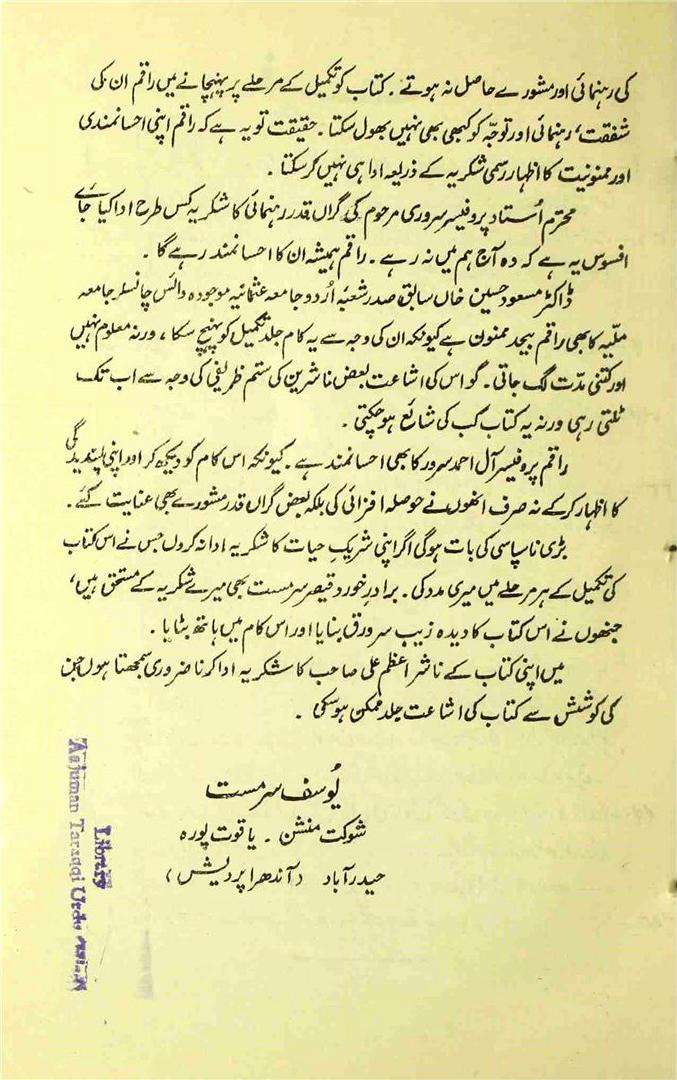 کی رہنمائی اور مشورے حاصل نہ ہوتے۔ کتاب کو تکمیل کے مرحلے پر پہنچانے میں راقم ان کی
شفقت، رہنمائی اور توجّہ کو کبھی بھی نہیں بھول سکتا۔ حقیقت تو یہ ہے کہ راقم اپنی احسانمندی
اور ممنونیت کا اظہار رسمی شکریہ کے ذریعہ ادا ہی نہیں کر سکتا۔
محترم اُستاد پروفیسر سروری مرحوم کی گراں قدر رہنمائی کا شکریہ کس طرح ادا کیا جائے
افسوس یہ ہے کہ وہ آج ہم میں نہ رہے۔ راقم ہمیشہ ان کا احسانمند رہے گا۔
ڈاکٹر مسعود حسین خاں سابق صدر شعبۂ اُردو جامعہ عثمانیہ موجودہ وائس چانسلر جامعہ
ملّیہ کا بھی راقم بیحد ممنون ہے کیونکہ ان کی وجہ سے یہ کام جلد تکمیل کو پہنچ سکا، ورنہ معلوم نہیں
اور کتنی مدّت لگ جاتی۔ گو اس کی اشاعت بعض ناشرین کی ستم ظریفی کی وجہ سے اب تک
ٹلتی رہی ورنہ یہ کتاب کب کی شائع ہو چکتی۔
راقم پروفیسر آل احمد سرور کا بھی احسانمند ہے۔ کیونکہ اس کام کو دیکھ کر اور اپنی پسندیدگی
کا اظہار کرکے نہ صرف انھوں نے حوصلہ افزائی کی بلکہ بعض گراں قدر مشورے بھی عنایت کئے۔
بڑی ناسپاسی کی بات ہوگی اگر اپنی شریکِ حیات کا شکریہ ادا نہ کروں جس نے اس کتاب
کی تکمیل کے ہر مرحلے میں میری مدد کی۔ برادرِ خورد قیصر سرمست بھی میرے شکریہ کے مستحق ہیں،
جنھوں نے اس کتاب کا دیدہ زیب سرورق بنایا اور اس کام میں ہاتھ بٹایا۔
میں اپنی کتاب کے ناشر اعظم علی صاحب کا شکریہ ادا کرنا ضروری سمجھتا ہوں جن
کی کوشش سے کتاب کی اشاعت جلد ممکن ہو سکی۔
یُوسف سرمست
شوکت منشن۔ یاقوت پورہ
حیدرآباد (آندھراپردیش)
Library
Anjuman Taraqqi Urdu